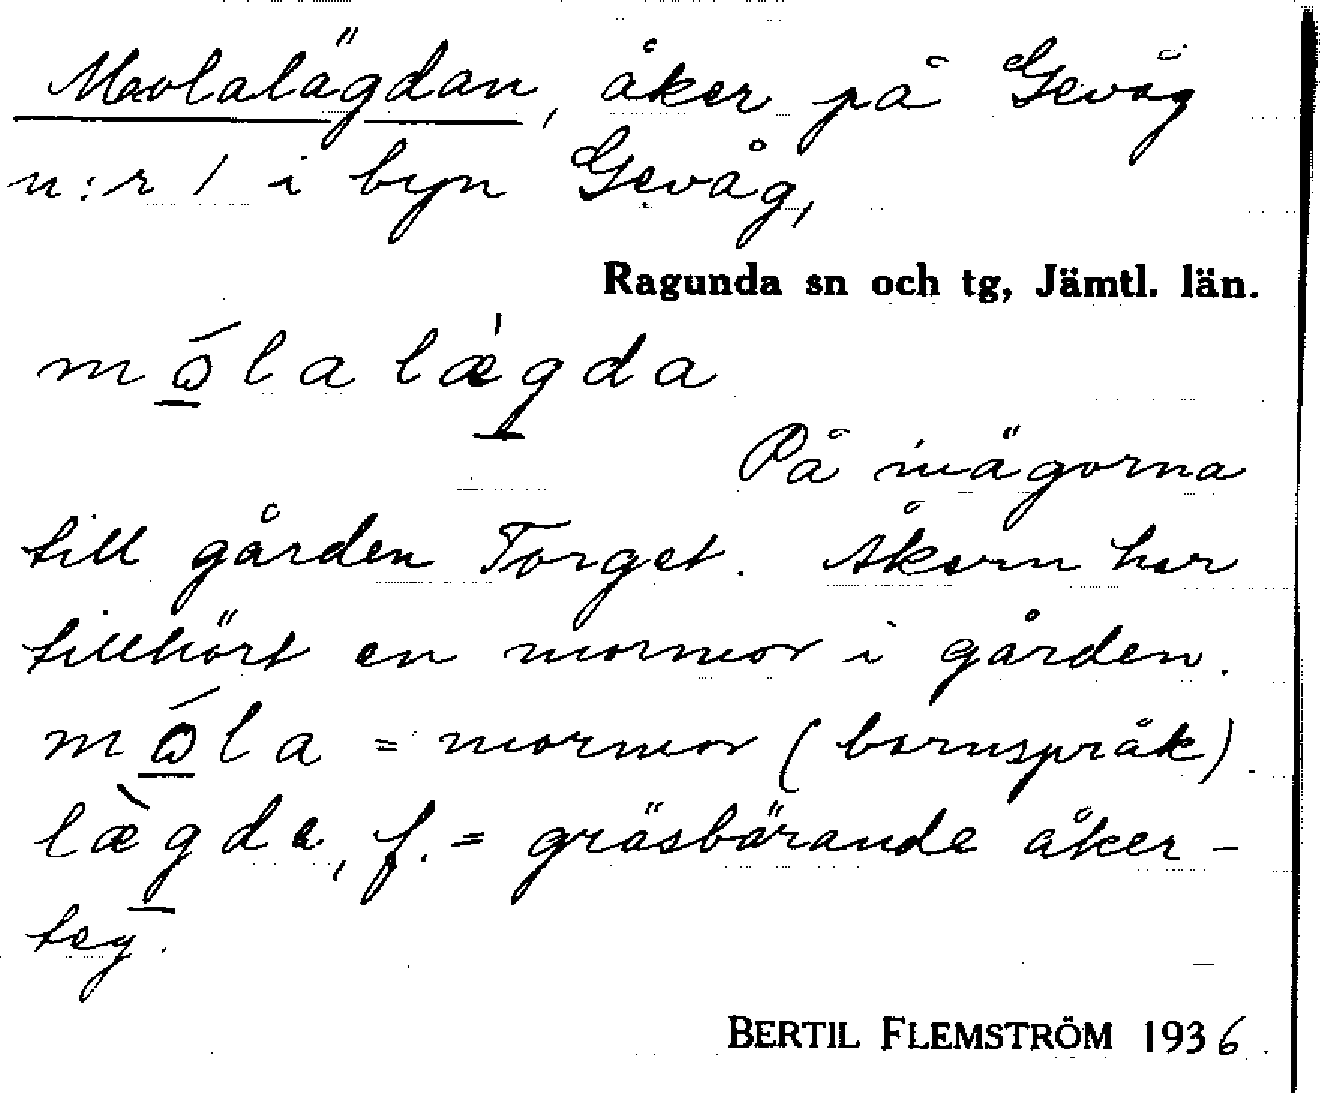 Molalägdan, åker på Gevåg
n:r 1 i byn Gevåg,
Ragunda sn och tg, Jämtl. län.
mǫ́lalǽgda
På inägorna
till gården Torget. Åkern har
tillhört en mormor i gården.
mǫ́la = mormor (barnspråk).
læ̀gda, f. = gräsbärande åker-
teg.
BERTIL FLEMSTRÖM 1936.